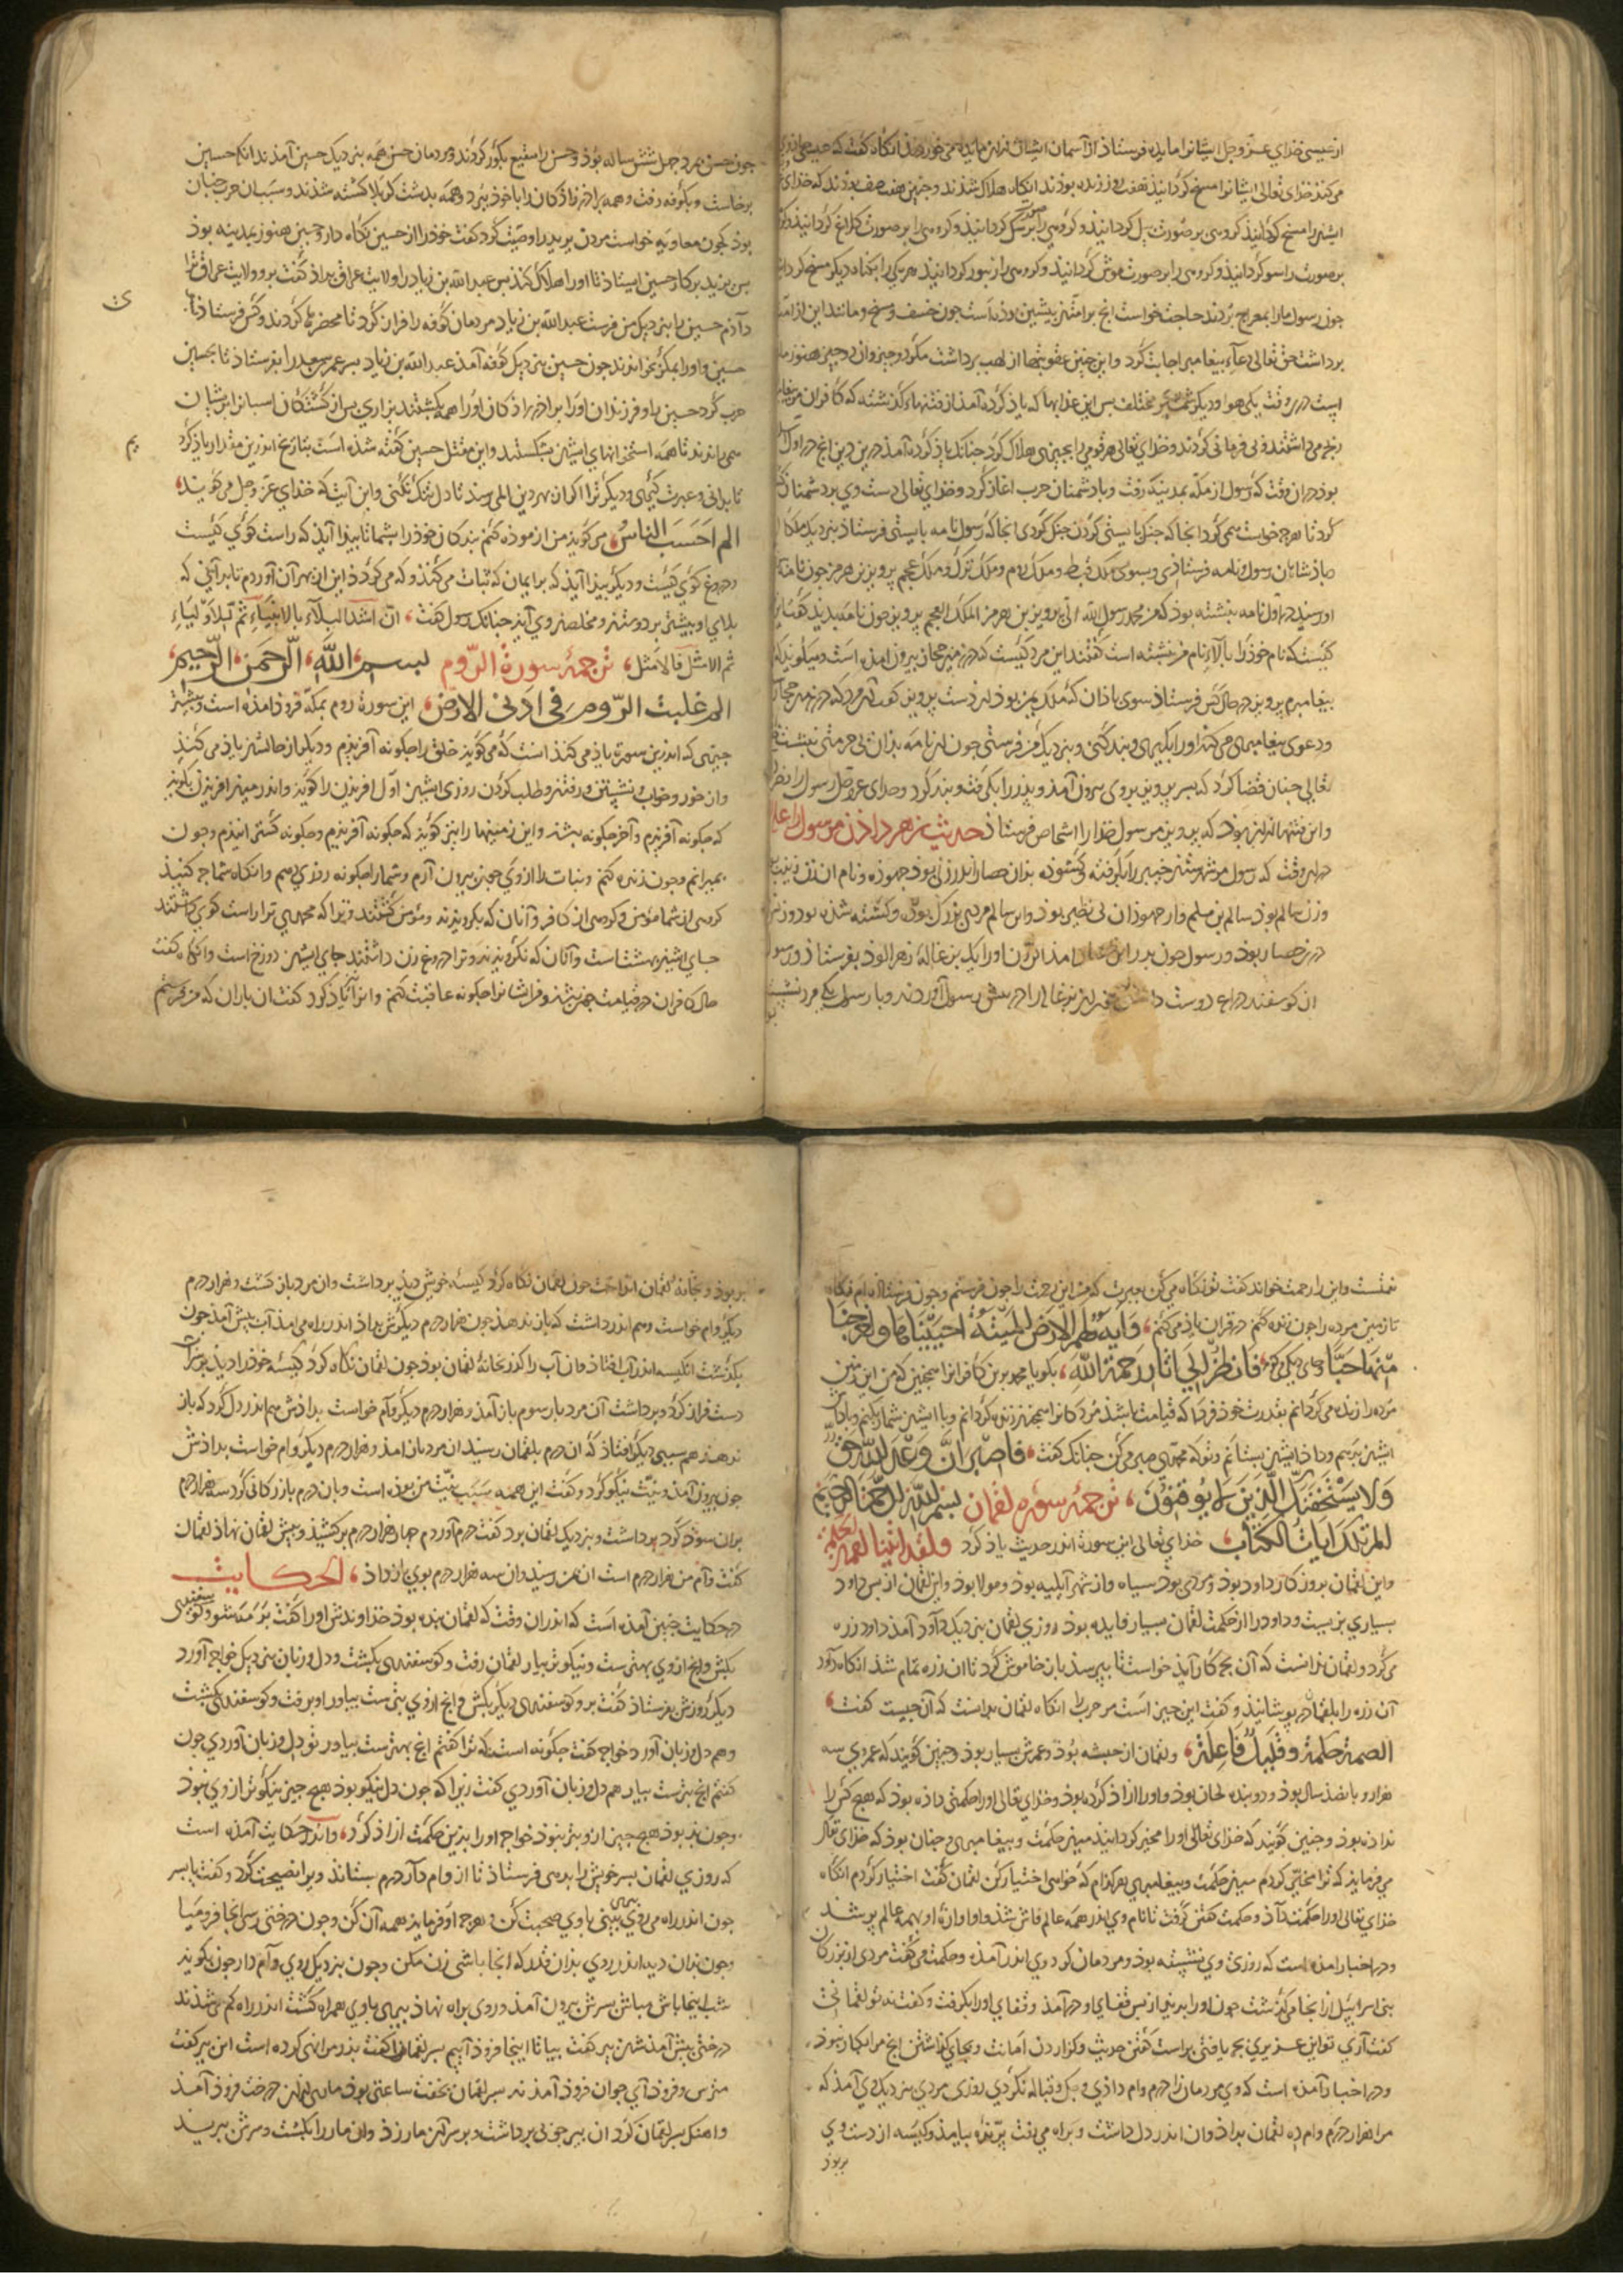 از عیسی خدای عزّ و جل ایشانرا مایده فرستاذ از آسمان ایشان از ان مایده می خوردند انکاه کفت که
می کنند خذای تعالی ایشانرا مسخ کردانیذ هفت روز زنده بوذند انکاه هلاک شذند و جنین هفت صف بوذند که خذای
ایشانرا مسخ کردانیذ کروهی بر صورت پیل کردانیذ و کروهی را خرس کردانیذ و کروهی را بر صورت کلاغ کردانیذ
بر صورت راسو کردانیذ و کروهی را بر صورت موش کردانیذ و کروهی را زنبور کردانیذ هر یکی را بکناه دیکر مسخ کردانیذ
جون رسول ما را بمعراج بردند حاجت خواست انج بر امتان پیشین بوذه است جون خسف و مسخ و مانند این از امت
برداشت حق تعالی دعآء بیغامبر اجابت کرد و این جنین عقوبتها از
رنج می داشتند و بی فرمانی کردند و خذای تعالی هر قومی را بجیزی هلاک کرد جنانک یاذ کرده آمذ درین دین انج در اول
بوذ در ان وقت که رسول از مکه بمدینه رفت و با دشمنان حرب اغاز کرد و خذای تعالی دست وی بر دشمنان
کرد تا هرج خواست همی کرد انجا که جنک بایستی کردن جنک کردی انجا که رسول نامه بایستی فرستاذ بنزدیک ملکان
باذشاهان رسول و نامه فرستاذی و بسوی ملک قبط و ملک روم و ملک ترک و ملک عجم پرویز بن هرمز جون نامه
او رسید در اول نامه نبشته بوذ که من محمد رسول الله الی پرویز بن هرمز الملک العجم پرویز جون نامه بدید کفتا این
کیست که نام خوذ را بالآء نام من نبشته است کفتند این مرد کیست که در زمین حجاز بیرون امذه است و میکوید که
بیغامبرم پرویز در حال کس فرستاذ سوی باذان که ملک یمن بوذ از دست پرویز کفت آن مرد که در زمین حجاز
و دعوی بیغامبری می کند او را بکیر و بند کن و بنزدیک من فرست جون ان نامه بذان بی حرمتی نبشت
تعالی جنان قضا کرد که پسر پرویز بر وی بیرون آمذ و پذر را بکرفت و بند کرد و خذای عز و جل رسول را
و این فتنها از ان بوذ که پرویز مر رسول خذا را اشخاص فرستاذ حدیث زهر داذن مر رسول را
در ان وقت که رسول مر شهر خیبر را بکرفته و کشوذه بدان حصار اندر زنی بوذ جهوذه و نام ان زن زینب
و زن سالم بوذ سالم بن مسلم و ان سالم مردی بزرک بوذ و کشته شذه بود و زنش
در ان حصار بوذ و رسول جون بدر این حصار امذ ان زن او را یک بزغاله زهر الوذ بفرستاذ و رسول
ان کوسفند ذراع دوست داشتی ان بزغاله را در پیش رسول آوردند و با رسول یکی مرد نشسته
جون حسن بمرد جهل و شش ساله بوذ و حسن را ببقیع بکور کردند و مردمان حسن همه بنزدیک حسین آمذند انکه حسین
برخاست و بکوفه رفت و همه براذر و براذرزاذکان را با خوذ ببرد و همه بدشت کربلا کشته شذند و سبب ان حرب جنان
بوذ که جون معاویه خواست مردن پر یزید را وصیت کرد کفت خوذ را از حسین نکاه دار و حسین هنوز بمدینه بوذ
پس یزید بر کار حسین ایستاذ تا او را هلاک کند پس عبد الله بن زیاد را ولایت عراق بداذ کفت برو ولایت عراق ترا
داذم حسین را بنزدیک من فرست عبد الله بن زیاد مردمان کوفه را فراز کرد تا محضرها کردند و کس فرستاذ تا
حسین و او را بمکر بخواندند جون حسین بنزدیک کوفه آمذ عبد الله بن زیاد پسر عمر سعد را بفرستاذ تا بحسین
حرب کرد حسین را و فرزندان او را و براذر و براذرزاذکان او را همه بکشتند بزاری پس از کشتکان اسبانرا بر ایشان
همی راندند تا همه استخوانهای ایشان بشکستند و این مقتل حسین کفته شذه است بتاریخ اندر این مقدار یاذ کرد
تا بدانی و عبرت کیری و دیکر ترا اکر از بهر دین المی رسد تا دل تنک نکنی و این آیت که خذای عز و جل می کوید
الم احسب الناس می کوید من ازموذه کنم بندکان خوذ را شما تا بیذا آیذ که راست کوی کیست
و دروغ کوی کیست و دیکر بیذا آیذ که بر ایمان که ثبات می کند و که می کردذ این از بهر آن آوردم تا بدانی که
بلای او بیشتر بر دوستان و مخلصان وی آید جنانک رسول کفت ان اشد البلآء بالانبیاء ثم بالاولیاء
ثم الامثل فالامثل ترجمهٔ سورة الروم بسم الله الرحمن الرحیم
الم غلبت الروم فی ادنی الارض این سورة روم بمکه فروذ امذه است و بیشتر
جیزی که اندرین سورة یاذ می کند انست که می کوید خلق را جکونه آفریذم و دیکر از حالشان یاذ می کند
و از خور و خواب و نشستن و رفتن و طلب کردن روزی ایشان اول افریذن را کوید و اندر میان افریذن بکوید
که جکونه آفریذم و آخر جکونه باشد و این زمینها را نیز کوید که جکونه آفریذم و جکونه کسترانیذم و جون
بمیرانم و جون زنده کنم و نبات را از وی جون بیرون آرم و شما را جکونه روزی دهم و انکاه شما جه کنید
کروهی از شما مؤمن و کروهی از شما کافر و آنان که بکرویذند و مؤمن کشتند و ترا که محمدی ترا راست کوی داشتند
جای ایشان بهشت است و آنان که نکرویذند و ترا دروغ زن داشتند جای ایشان دوزخ است و انکاه کفت
حال کافران در قیامت جون باشد و من ایشانرا جکونه عاقبت کنم و انرا یاذ کرد کفت ان باران که من فرستم
نعمتست و این را رحمت خواند کفت تو نکاه می کن بعبرت که من این رحمت را جون فرستم و جون فرستاذه ام و نکاه
تا زمین مرده را جون زنده کنم در قران یاذ می کنم وآیة لهم الارض المیتة احییناها واخرجنا
منها حبا و جای دیکر کفت فانظر الی اثار رحمة الله بکو یا محمد برین کافرانرا همجنین که من این زمین
مرده را زنده می کردانم بقدرت خوذ فردا که قیامت باشذ مردکانرا همجنان زنده کردانم و با ایشان شمار بکنم و
ایشان بدهم و داذ ایشان بستانم و تو که محمدی صبر می کن جنانک کفت فاصبر ان وعد الله حق
ولا یستخفنک الذین لا یوقنون ترجمهٔ سوره لقمان بسم الله الرحمن الرحیم
الم تلک ایات الکتاب خذای تعالی این سورة اندر حدیث یاذ کرد ولقد اتینا لقمن الحکمة
و این لقمان بروزکار داود بوذ و مردی بوذ سیاه و از شهر آیلیه بوذ و مولا بوذ و این لقمان از پس داود
بسیاری بزیست و داود را از حکمت لقمان بسیار فایده بوذ روزی لقمان بنزدیک داود آمذ داود زره
می کرد و لقمان ندانست که آن بجه کار آید خواست تا بپرسذ باز خاموش کرد تا ان زره تمام شذ انکاه داود
آن زره را بلقمان در پوشانیذ و کفت این جیز است مر حرب را انکاه لقمان بدانست که آن جیست کفت
الصمت حکمة وقلیل فاعله و لقمان از حبشه بوذ و عمرش بسیار بوذ و جنین کویند که عمر وی سه
هزار و پانصذ سال بوذ و بنده لحان بوذ و او را ازاذ کرده بوذ و خذای تعالی او را حکمتی داذه بوذ که هیج کس را
نداذه بوذ و جنین کویند که خذای تعالی او را مخیر کردانیذ میان حکمت و بیغامبری و جنان بوذ که خذای تعالی
می فرماید که ترا مخیر کردم میان حکمت و بیغامبری هر کذام که خواهی اختیار کن لقمان کفت اختیار کردم انکاه
خذای تعالی او را حکمت داذ و حکمت کفتن کرفت تا نام وی اندر همه عالم فاش شذ و اوازهٔ او بهمه عالم پر شذ
و در اخبار امذه است که روزی وی نشسته بوذ و مردمان کرد وی اندر آمذه و حکمت می کفت مردی از بزرکان
بنی اسرائیل از انجا می کذشت جون او را بدید از پس قفای او در آمذ و قفای او را بکرفت و کفت نه تو لقمانی
کفت آری تو این عزیزی بجه یافتی براست کفتن حدیث و کزاردن امانت و بجای کذاشتن انج مرا بکار نبوذ
و در اخبار آمذه است که وی مردمان را درم وام داذی و جک و قباله نکردی روزی مردی بنزدیک وی آمذ که
مرا هزار درم وام ده لقمان بداذ و ان اندر دل داشت و براه می رفت پرنده بیامذ و کیسه از دست وی
بربوذ
بربوذ و بخانهٔ لقمان انداخت جون لقمان نکاه کرد کیسه خویش دید برداشت و ان مرد باز کشت و هزار درم
دیکر وام خواست و هم اندر داشت که باز ندهذ جون هزار درم دیکرش بداذ اندر راه می امذ آب پیش آمذ جون
بکذشت ان کیسه اندر آب افتاذ و ان آب را کذر بخانهٔ لقمان بوذ جون لقمان نکاه کرد کیسه خوذ را دید بر سر آب
دست فراز کرد و برداشت آن مرد بار سوم باز آمذ و هزار درم دیکر وام خواست بداذش هم اندر دل کرد که باز
ندهذ هم سببی دیکر افتاذ که ان درم بلقمان رسید ان مرد باز امذ و هزار درم دیکر وام خواست بداذش
جون بیرون آمذ و نیت نیکو کرد و کفت این همه سبب نیت من بوذه است و بان درم بازرکانی کرد سه هزار درم
بران سوذ کرد برداشت و بنزدیک لقمان برد کفت درم آوردم جهار هزار درم برکشید و پیش لقمان نهاذ لقمان
کفت وام من هزار درم است ان بمن رسید و ان سه هزار درم بوی باز داذ الحکایت
در حکایت جنین آمذه است که اندران وقت که لقمان بنده بوذ خذاوندش او را کفت برمه شو و کوسفندی
بکش و انج از وی بهترست و نیکوتر بیار لقمان رفت و کوسفندی بکشت و دل و زبان بنزدیک خواجه آورد
دیکر روزش بفرستاذ کفت برو کوسفندی دیکر بکش و انج از وی بترست بیاور او برفت و کوسفندی بکشت
و هم دل و زبان آورد خواجه کفت جکونه است که ترا کفتم انج بهترست بیاور تو دل و زبان آوردی جون
کفتم انج بترست بیار هم دل و زبان آوردی کفت زیرا که جون دل نیکو بوذ هیج جیز نیکوتر از وی نبوذ
و جون بد بوذ هیج جیز از و بتر نبوذ خواجه او را بدین حکمت ازاذ کرد و اندر حکایت آمذه است
که روزی لقمان پسر خویش را بدهی فرستاذ تا از وام دار درم بستاند و برا نصیحت کرد و کفت یا پسر
جون اندر راه می روی پیری بینی با وی صحبت کن و هرجه او فرماید همه آن کن و جون درختی رسی انجا فرو میا
و جون بدان دیه اندر روی بدان قدر که انجا باشی زن مکن و جون بنزدیک وی روی وام دار جون بکوید
شب اینجا باش مباش پسرش بیرون آمذ و روی براه نهاذ پیری با وی همراه کشت اندر راه کم می شذند
درختی پیش آمذشان پیر کفت بیا تا اینجا فروذ آییم پسر لقمان کفت پدر مرا نهی کرده است این پیر کفت
مترس و فروذ آی جوان فروذ آمذند پسر لقمان بخفت ساعتی بوذ ماری از ان درخت فروذ آمذ
و اهنک پسر لقمان کرد ان پیر جوبی برداشت و بر سر آن مار زذ و ان مار را بکشت و سرش ببرید